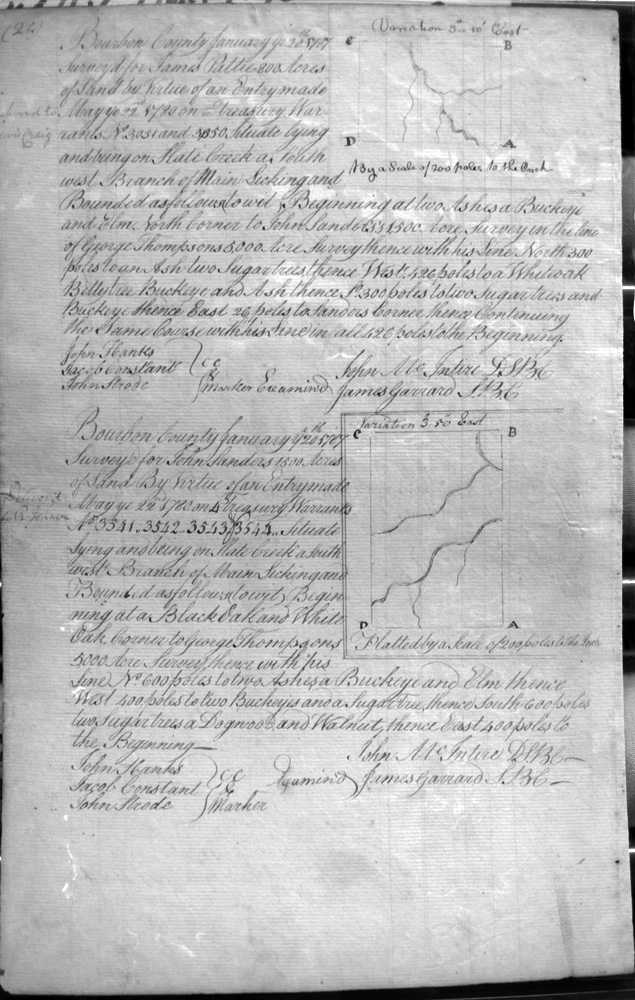 (24)
Bourbon County January ye 20th 1787
Survey'd for James Pattie 800 Acres
of Land by Virtue of an Entry made
May ye 22 1780 on Treasury War-
rants No 3051 and Situate lying
and being on Slate Creek a South
west Branch of Main Licking and
Bounded as follows (towit) Beginning at two Ashes a Buckeye
and Elm North Corner to John Sanders's 1500 Acre Survey in the line
of George Thompsons 5000 Acre Survey thence with his Line North 300
poles to an Ash two Sugartrees thence West 426 poles to a Whiteoak
Buckeye and Ash thence So 300 poles to two Sugartrees and
Buckeye thence East 26 poles to Sanders Corner thence Continuing
the Same Course with his Line in all 426 poles to the Beginning.
John Hanks
Jacob Constant
John Strode
cc
Marker Examined
John McIntire D.S.B.C
James Garrard S.B.C
Variation 3° 50' East
C B
D A
By a Scale of 200 poles to the Inch
Bourbon County January ye 20th 1787
Survey'd for John Sanders 1500 Acres
of Land By Virtue of an Entry made
May ye 22d 1780 on 4 Treasury Warrants
No 3541..3542..3543 & 3544.. Situate
Lying and being on Slate Creek a South
west Branch of Main Licking and
Bounded as follows (towit) Begin
ning at a Black Oak and White
Oak Corner to George Thompsons
5000 Acre Survey, thence with his
Line No 600 poles to two Ashes, a Buckeye and Elm thence
West 400 poles to two Buckeyes and a Sugar tree, thence South 600 poles
two Sugartrees a Dogwood and Walnut, thence East 400 poles to
the Beginning
John Hanks
Jacob Constant
John Strode
cc
Marker
Examined
John McIntire D.S.B.C
James Garrard S.B.C
Variation 3° 50' East
C B
D A
Platted by a Scale of 200 poles to the Inch